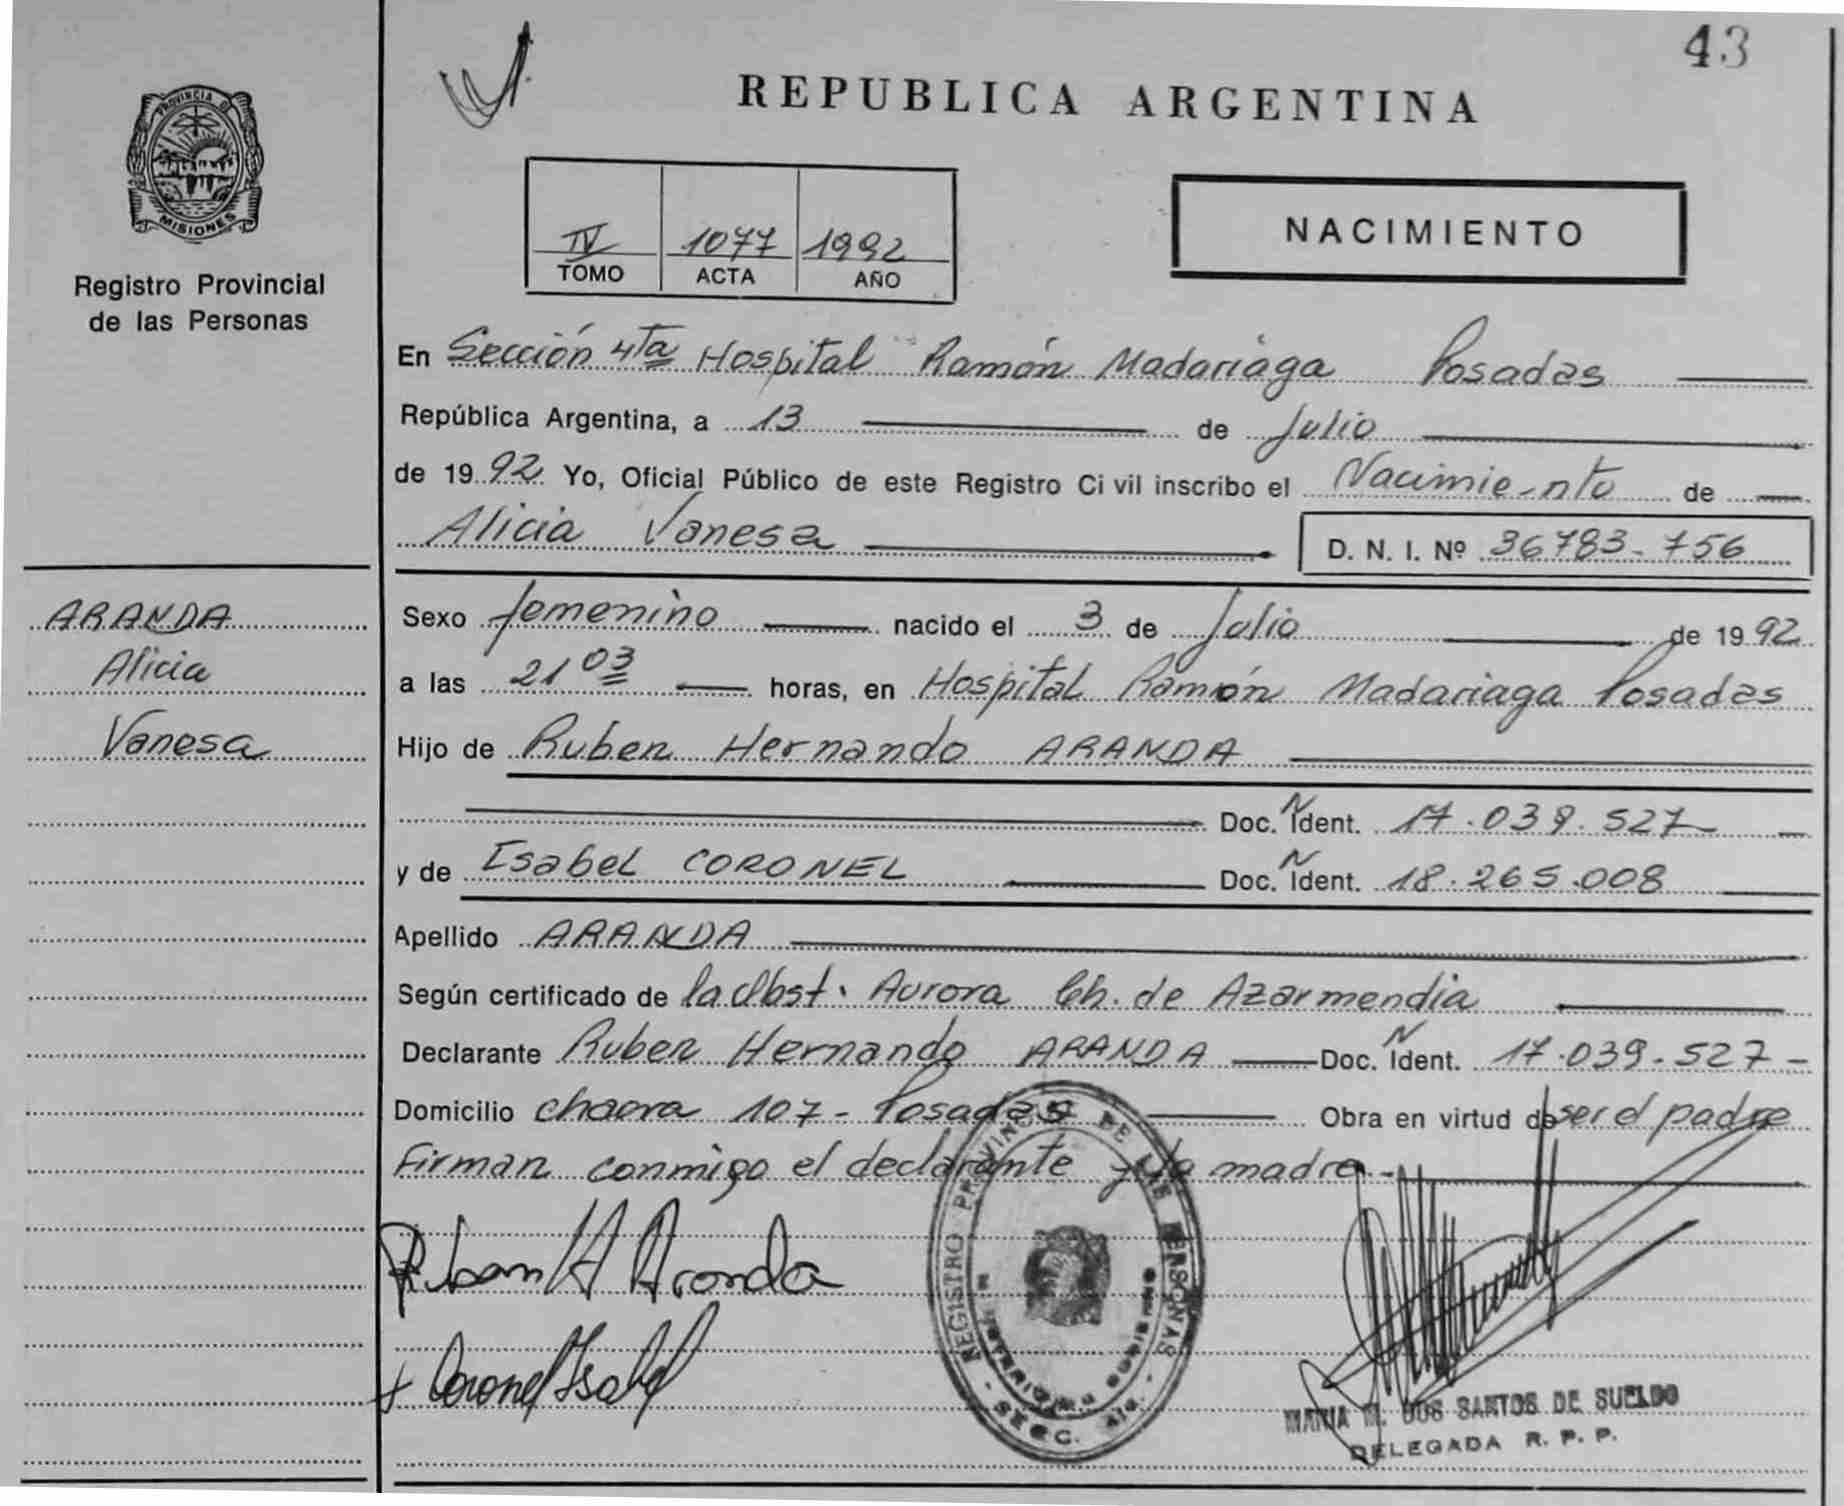 43
REPUBLICA ARGENTINA
PROVINCIA DE
MISIONES
Registro Provincial
de las Personas
IV 1077 1992
TOMO ACTA AÑO
NACIMIENTO
En Sección 4ta Hospital Ramón Madariaga Posadas
República Argentina, a 13 de Julio
de 1992 Yo, Oficial Público de este Registro Civil inscribo el Nacimiento de
Alicia Vanesa D. N. I. Nº 36783-756
ARANDA
Alicia
Vanesa
Sexo femenino nacido el 3 de Julio de 1992
a las 21 03 horas, en Hospital Ramón Madariaga Posadas
Hijo de Ruben Hernando ARANDA
Doc. N Ident. 17.039.527
y de Isabel CORONEL Doc. N Ident. 18.265.008
Apellido ARANDA
Según certificado de la Obst. Aurora Ch. de Azarmendia
Declarante Ruben Hernando ARANDA Doc. N Ident. 17.039-527-
Domicilio chacra 107- Posadas Obra en virtud de ser el padre
Firman conmigo el declarante y la madre.-
Ruben H Aranda
Coronel Isabel
REGISTRO PROVINCIAL DE LAS PERSONAS
SECC. 4ta.
MARIA M. DOS SANTOS DE SUELDO
DELEGADA R. P. P.